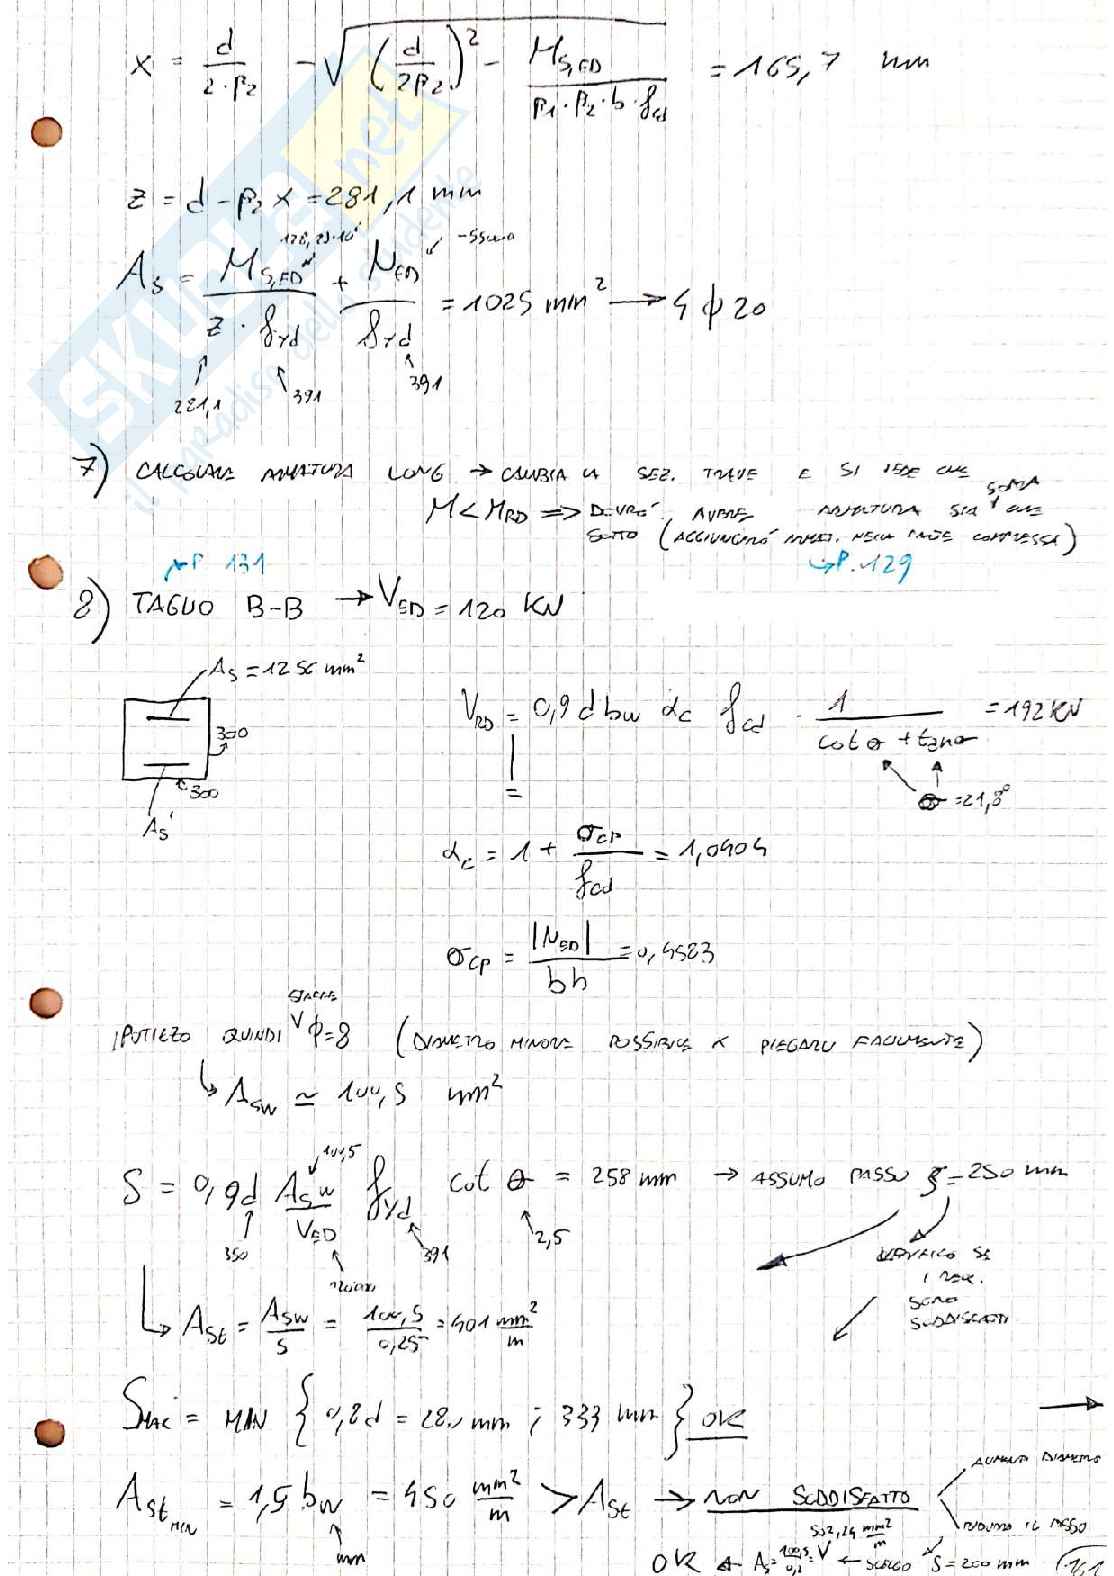 x = d/(2·β2) - √((d/(2β2))² - M_S,ED/(β1·β2·b·fcd)) = 165,7 mm
z = d - β2 x = 281,1 mm
128,23·10⁶ -55000
As = M_S,ED/(z·fyd) + N_ED/fyd = 1025 mm² → 4 ϕ 20
281,1 391 391
7) CALCOLARE ARMATURA LONG → CAMBIA LA SEZ. TRAVE E SI VEDE CHE
M < M_RD ⇒ DOVRÓ AVERE ARMATURA SIA SOPRA CHE
SOTTO (AGGIUNGERÓ ARMAT. NELLA PARTE COMPRESSA)
P 131
P. 129
8) TAGLIO B-B → V_ED = 120 KN
As = 1256 mm²
300
As'
V_RD = 0,9 d bw αc fcd · 1/(cot θ + tan θ) = 192 KN
θ = 21,8°
αc = 1 + σcp/fcd = 1,0404
σcp = |N_ED|/(b h) = 0,4583
STAFFE
IPOTIZZO QUINDI ϕ=8 (DIAMETRO MINORE POSSIBILE X PIEGARLO FACILMENTE)
↳ Asw ≃ 100,5 mm²
100,5
S = 0,9d Asw/V_ED fyd cot θ = 258 mm → ASSUMO PASSO S = 250 mm
350 120000 391 2,5
VERIFICO SE
I REQ.
SONO
SODDISFATTI
↳ Ast = Asw/s = 100,5/0,25 = 401 mm²/m
Smax = MIN {0,8d = 280 mm ; 333 mm} OK
AUMENTO DIAMETRO
Ast MIN = 1,5 bw = 450 mm²/m > Ast → NON SODDISFATTO
mm
RIDUCO IL PASSO
OK ← As = 100,5/0,2 = 502,24 mm²/m ← SCELGO S = 200 mm